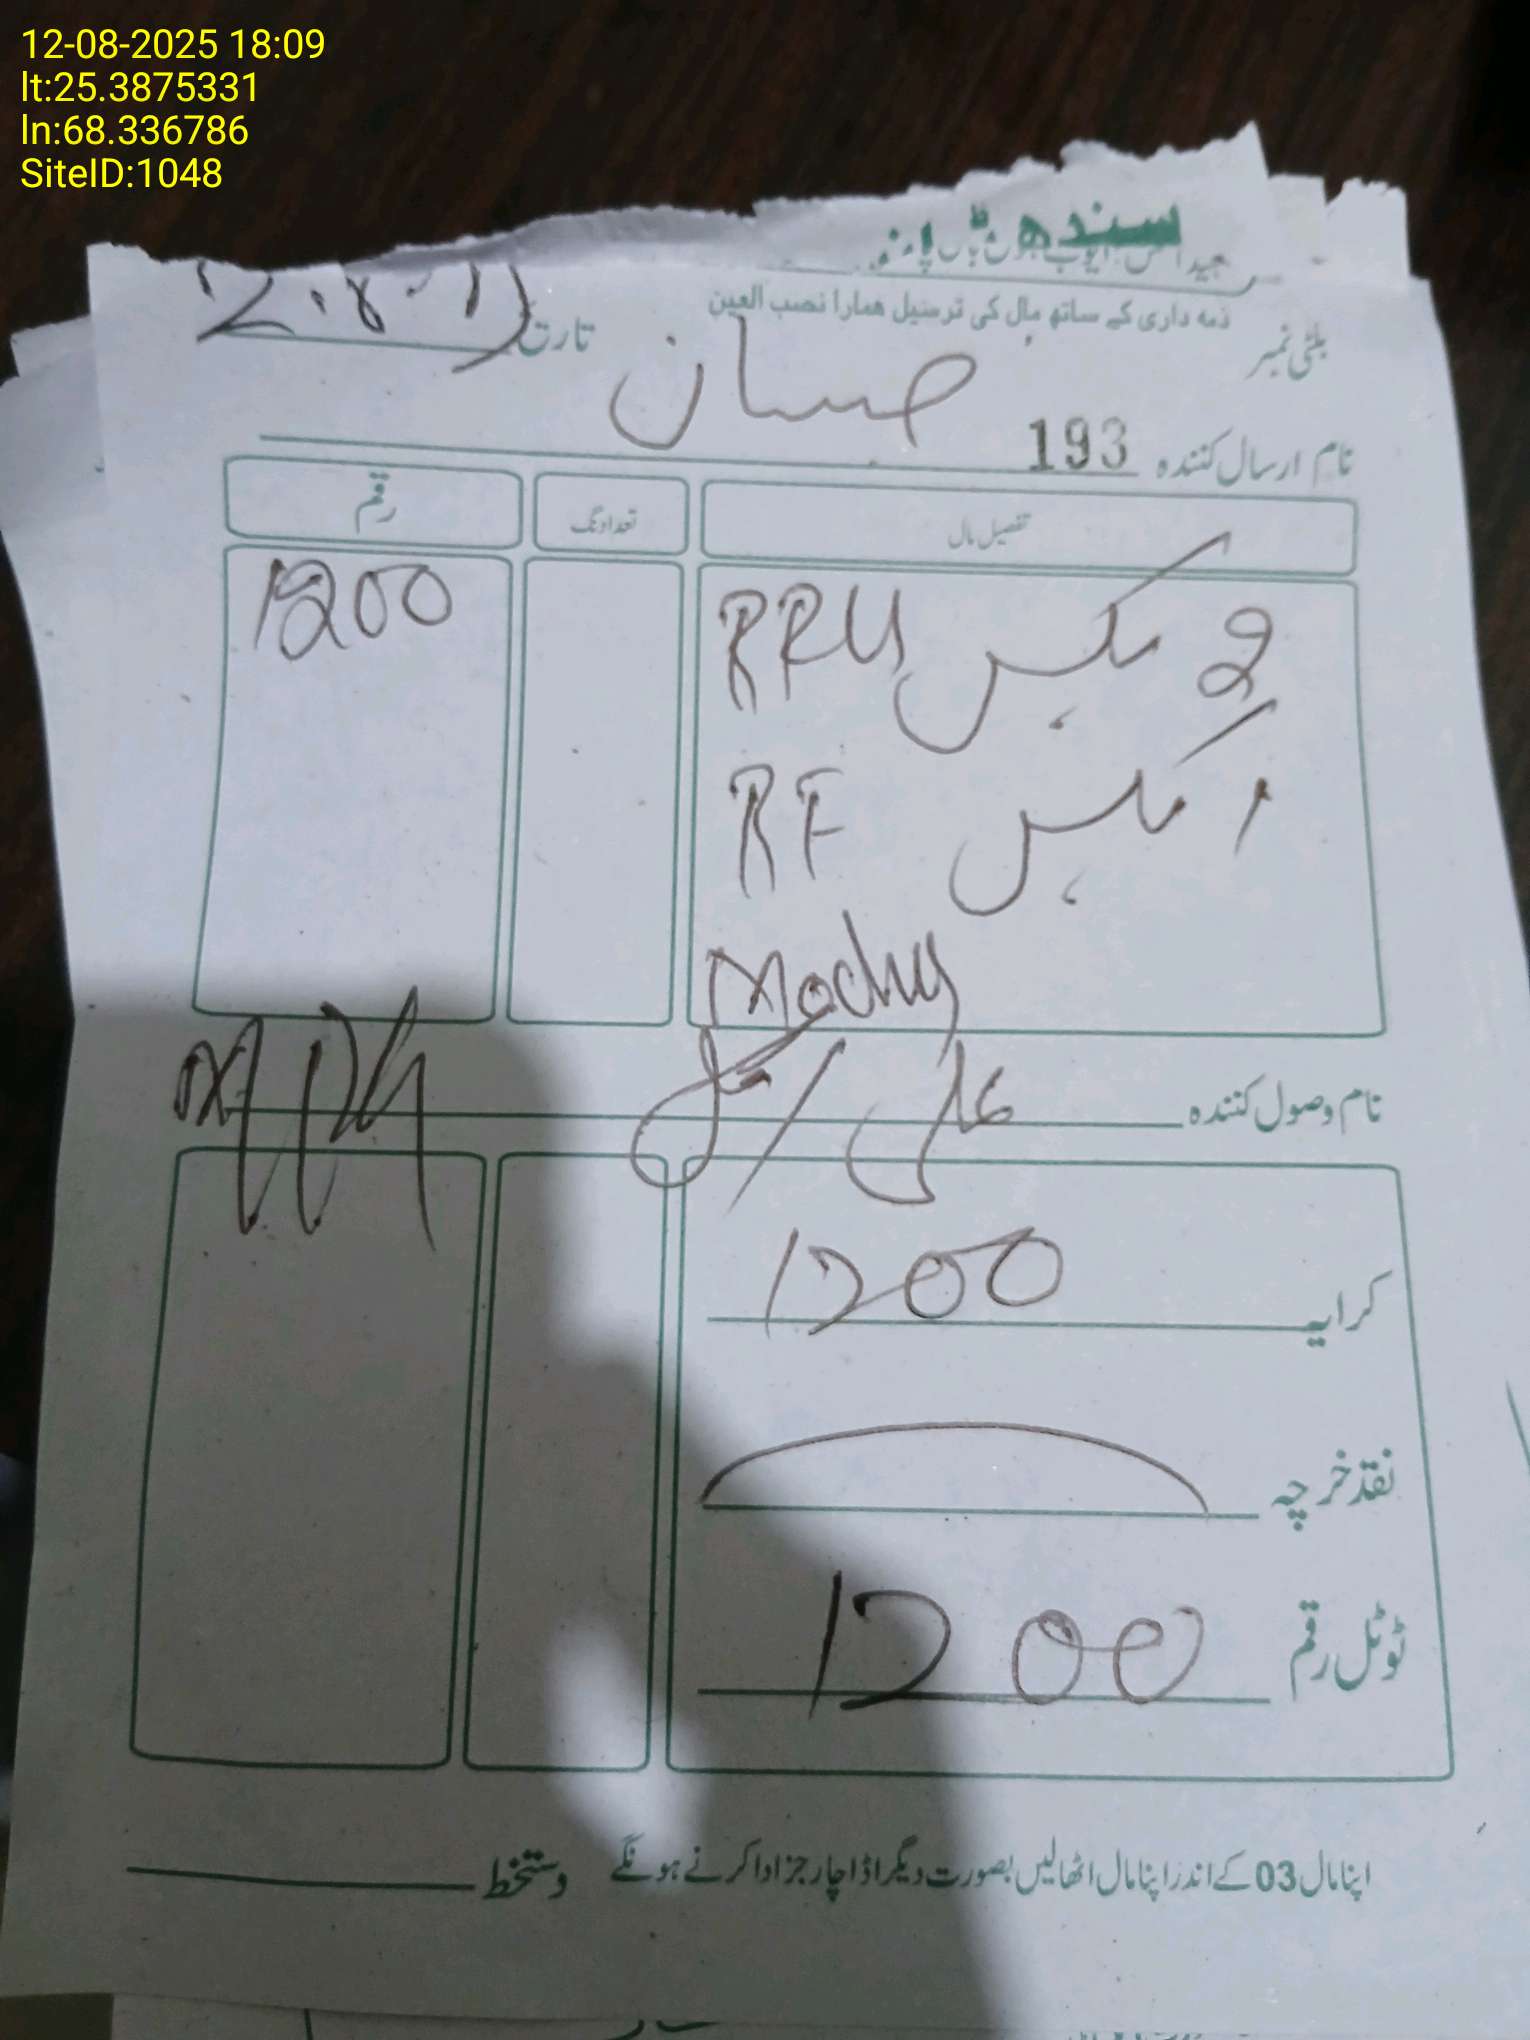 12-08-2025 18:09
lt:25.3875331
ln:68.336786
SiteID:1048
سندھ
ذمہ داری کے ساتھ مال کی ترسیل ہمارا نصب العین
بلٹی نمبر
تاریخ
نام ارسال کنندہ 193 حسان
تفصیل مال تعداد نگ رقم
2 بکس RRU 1200
1 بکس RF
نام وصول کنندہ علی /
کرایہ 1200
نقد خرچہ
ٹوٹل رقم 1200
اپنا مال 03 کے اندر اپنا مال اٹھالیں بصورت دیگر اڈا چارجز ادا کرنے ہونگے دستخط